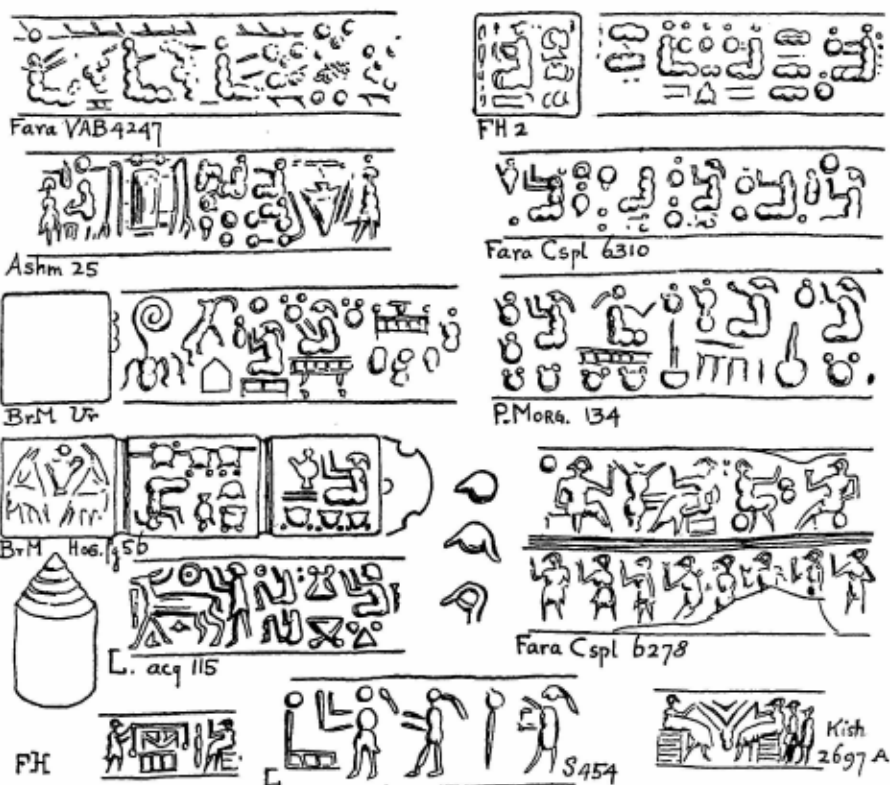 Fara VAB 4247
FH 2
Ashm 25
Fara Cspl 6310
BrM Ur
P. MORG. 134
BrM Hog. fg 5b
L. acq 115
Fara Cspl 6278
FH
L S454
Kish
2697 A